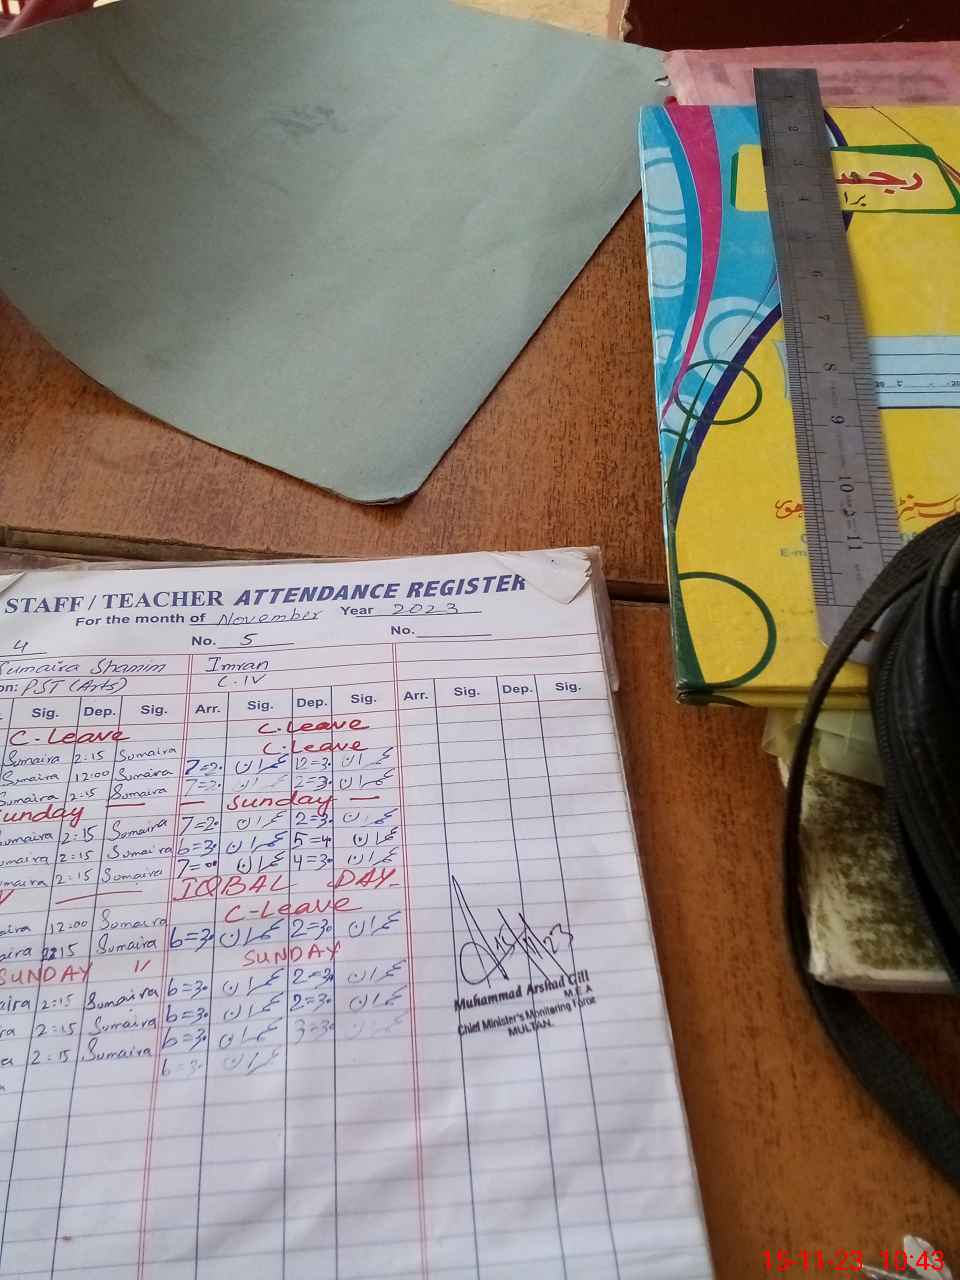 رجسٹر
برا
1
2
3
4
5
6
7
8
9
10
11
20 -20
E-m
STAFF / TEACHER ATTENDANCE REGISTER
For the month of November Year 2023
4 No. 5 No.
Sumaira Shamim Imran
on: PST (Arts) C.IV
Sig. Dep. Sig. Arr. Sig. Dep. Sig. Arr. Sig. Dep. Sig.
C-Leave C.Leave
Sumaira 2:15 Sumaira C.Leave
Sumaira 12:00 Sumaira 7=20 عمران 12=30 عمران
Sumaira 2:15 Sumaira 7=20 عمران 2=30 عمران
unday — — Sunday —
umaira 2:15 Sumaira 7=20 عمران 2=30 عمران
umaira 2:15 Sumaira 6=30 عمران 5=40 عمران
maira 2:15 Sumaira 7=00 عمران 4=30 عمران
Y IQBAL DAY
aira 12:00 Sumaira C-Leave
aira 2:15 Sumaira 6=30 عمران 2=30 عمران
SUNDAY 11 SUNDAY
aira 2:15 Sumaira 6=30 عمران 2=30 عمران
ra 2:15 Sumaira 6=30 عمران 2=30 عمران
a 2:15 Sumaira 6=30 عمران 3=30 عمران
6=30 عمران
15/11/23
Muhammad Arshad Gill
M.E.A
Chief Minister's Monitoring Force
MULTAN.
15-11-23 10:43